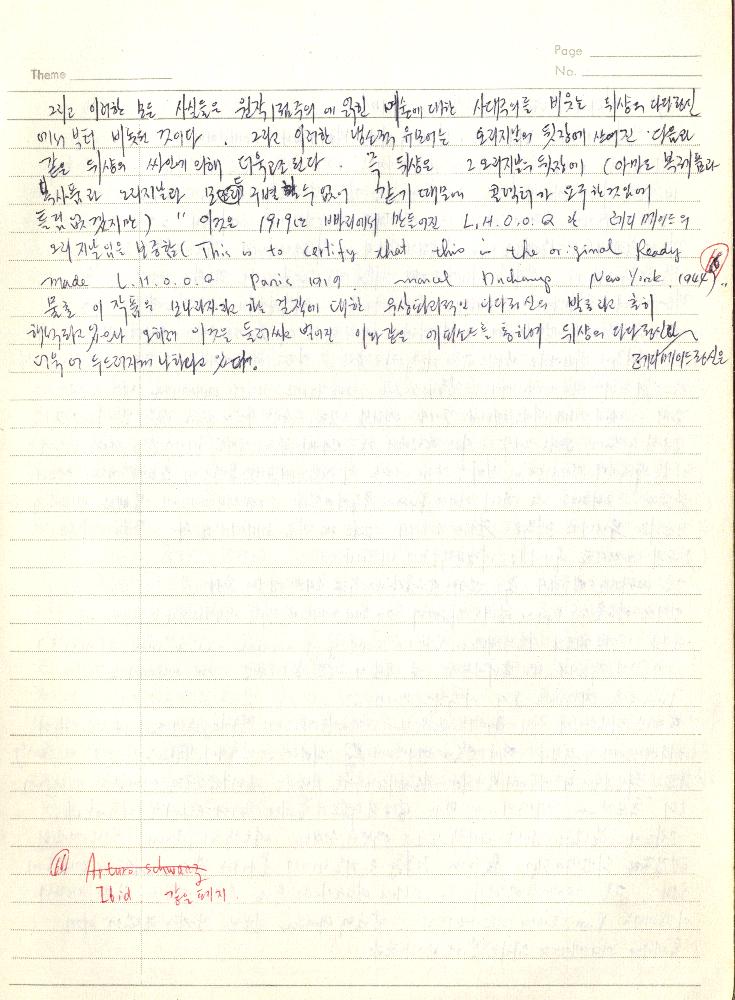 Page
Theme
No.
그리고 이러한 모든 사실들은 원작 1점주의에 얽힌 예술에 대한 사대주의를 비웃는 뒤샹의 다다정신
에서부터 비롯된 것이다. 그리고 이러한 냉소적 유모어는 오리지날의 뒷장에 쓰여진 다음과
같은 뒤샹의 싸인에 의해 더욱 고조된다. 즉 뒤샹은 그 오리지날의 뒷장에 (아마도 복제품과
복사품과 오리지날과 모두 구별할 수 없이 같기 때문에 콜렉터가 요구한 것임에
틀림 없겠지만) " 이것은 1919년 빠리에서 만들어진 L.H.O.O.Q 란 레디메이드의
오리지날임을 보증함 (This is to certify that this is the original Ready
made L.H.O.O.Q Paris 1919. marcel Duchamp New York. 1944) "
물론 이 작품은 모나리자라고 하는 걸작에 대한 우상타파적인 다다정신의 발로라고 흔히
해석되고 있으나 오히려 이것을 둘러싸고 벌어진 이와 같은 에피소드를 통하여 뒤샹의 다다정신
더욱 더 두드러지게 나타나고 있다.
레디메이드정신은
Arturo schwarz
Ibid. 같은 페이지.